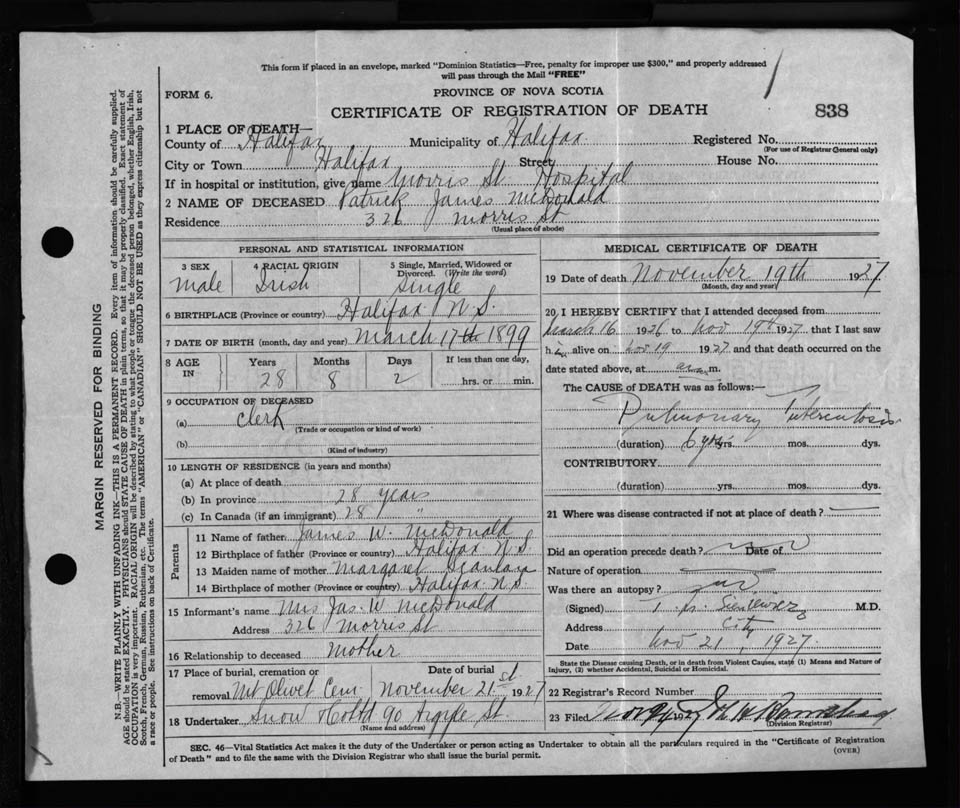 This form if placed in an envelope, marked "Dominion Statistics—Free, penalty for improper use $300," and properly addressed
will pass through the Mail "FREE"
FORM 6.
PROVINCE OF NOVA SCOTIA
CERTIFICATE OF REGISTRATION OF DEATH
838
1 PLACE OF DEATH—
County of Halifax Municipality of Halifax Registered No.
(For use of Registrar General only)
City or Town Halifax Street House No.
If in hospital or institution, give name Morris St Hospital
2 NAME OF DECEASED Patrick James McDonald
Residence 326 Morris St
(Usual place of abode)
PERSONAL AND STATISTICAL INFORMATION
3 SEX 4 RACIAL ORIGIN 5 Single, Married, Widowed or
Divorced. (Write the word)
Male Irish Single
6 BIRTHPLACE (Province or country) Halifax N.S.
7 DATE OF BIRTH (month, day and year) March 17th 1899
8 AGE IN Years Months Days If less than one day,
28 8 2 hrs. or min.
9 OCCUPATION OF DECEASED
(a) Clerk
(Trade or occupation or kind of work)
(b)
(Kind of industry)
10 LENGTH OF RESIDENCE (in years and months)
(a) At place of death
(b) In province 28 years
(c) In Canada (if an immigrant) 28 "
Parents
11 Name of father James W. McDonald
12 Birthplace of father (Province or country) Halifax N.S.
13 Maiden name of mother Margaret Scanlan
14 Birthplace of mother (Province or country) Halifax N.S.
15 Informant's name Mrs Jas. W. McDonald
Address 326 Morris St
16 Relationship to deceased Mother
17 Place of burial, cremation or Date of burial
removal Mt Olivet Cem November 21st 1927
18 Undertaker Snow & Co Ltd 90 Argyle St.
(Name and address)
MEDICAL CERTIFICATE OF DEATH
19 Date of death November 19th 1927
(Month, day and year)
20 I HEREBY CERTIFY that I attended deceased from
March 16 1926 to Nov 19th 1927, that I last saw
him alive on Nov 19 1927 and that death occurred on the
date stated above, at a.m.
The CAUSE OF DEATH was as follows:—
Pulmonary Tuberculosis
(duration) 6 yrs. mos. dys.
CONTRIBUTORY
(duration) yrs. mos. dys.
21 Where was disease contracted if not at place of death?
Did an operation precede death? no Date of
Nature of operation
Was there an autopsy? no
(Signed) M.D.
Address City
Date Nov 21, 1927.
State the Disease causing Death, or in death from Violent Causes, state (1) Means and Nature of
Injury, (2) whether Accidental, Suicidal or Homicidal.
22 Registrar's Record Number
23 Filed 1927
(Division Registrar)
SEC. 46—Vital Statistics Act makes it the duty of the Undertaker or person acting as Undertaker to obtain all the particulars required in the "Certificate of Registration
of Death" and to file the same with the Division Registrar who shall issue the burial permit.
(OVER)
MARGIN RESERVED FOR BINDING
N.B.—WRITE PLAINLY WITH UNFADING INK—THIS IS A PERMANENT RECORD. Every item of information should be carefully supplied.
AGE should be stated EXACTLY. PHYSICIANS should STATE CAUSE OF DEATH in plain terms, so that it may be properly classified. Exact statement of
OCCUPATION is very important. RACIAL ORIGIN will be described by stating to what people or tongue the deceased person belonged, whether English, Irish,
Scotch, French, German, Russian, Ruthenian, etc. The terms "AMERICAN" or "CANADIAN" SHOULD NOT BE USED as they express citizenship but not
a race or people. See instructions on back of Certificate.